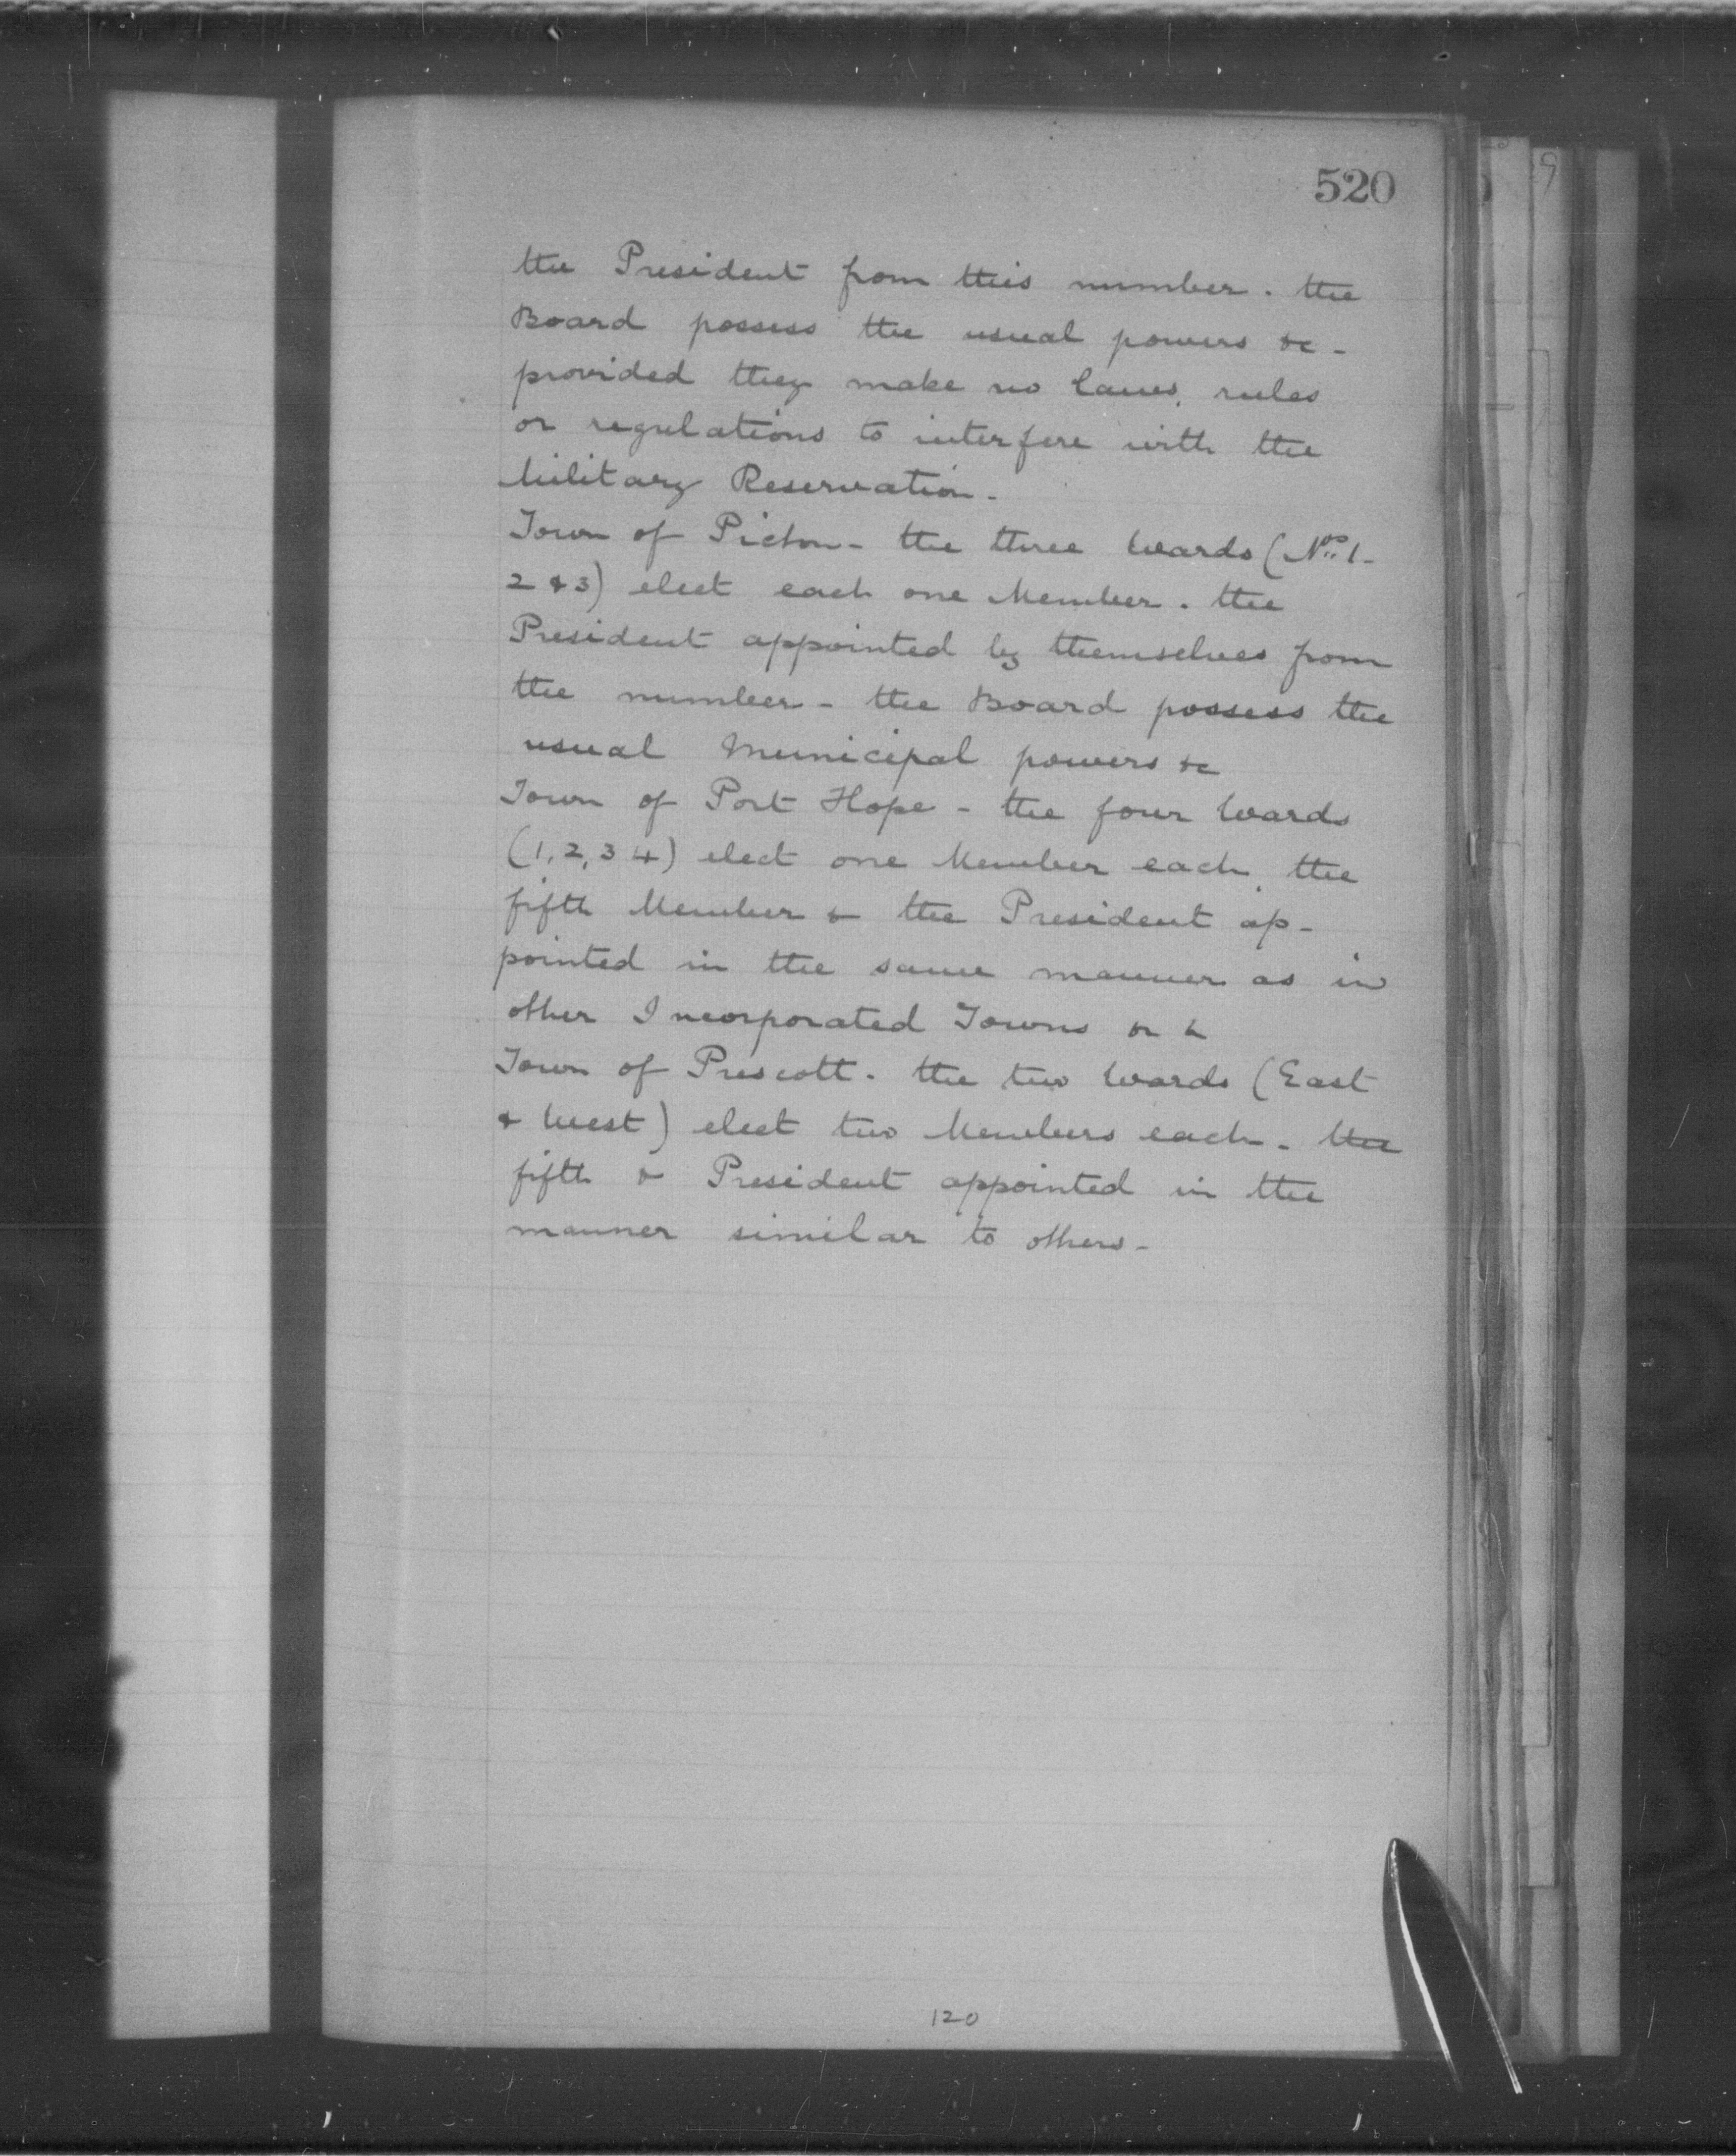 520
the President from this number. the
Board possess the usual powers &c -
provided they make no laws, rules
or regulations to interfere with the
Military Reservation -
Town of Picton - the three Wards (Nos. 1 -
2 & 3) elect each one Member. the
President appointed by themselves from
the number - the Board possess the
usual Municipal powers &c
Town of Port Hope - the four Wards
(1, 2, 3 4) elect one Member each, the
fifth Member & the President ap-
pointed in the same manner as in
other Incorporated Towns
Town of Prescott. the two Wards (East
& West) elect two Members each - the
fifth & President appointed in the
manner similar to others -
120